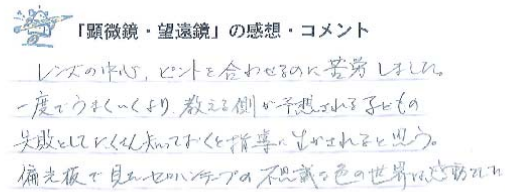 「顕微鏡・望遠鏡」の感想・コメント
レンズの中心、ピントを合わせるのに苦労しました。
一度でうまくいくより、教える側が予想される子どもの
失敗としてたくさん知っておくと指導に生かされると思う。
偏光板で見たセロハンテープの不思議な色の世界は感動でした